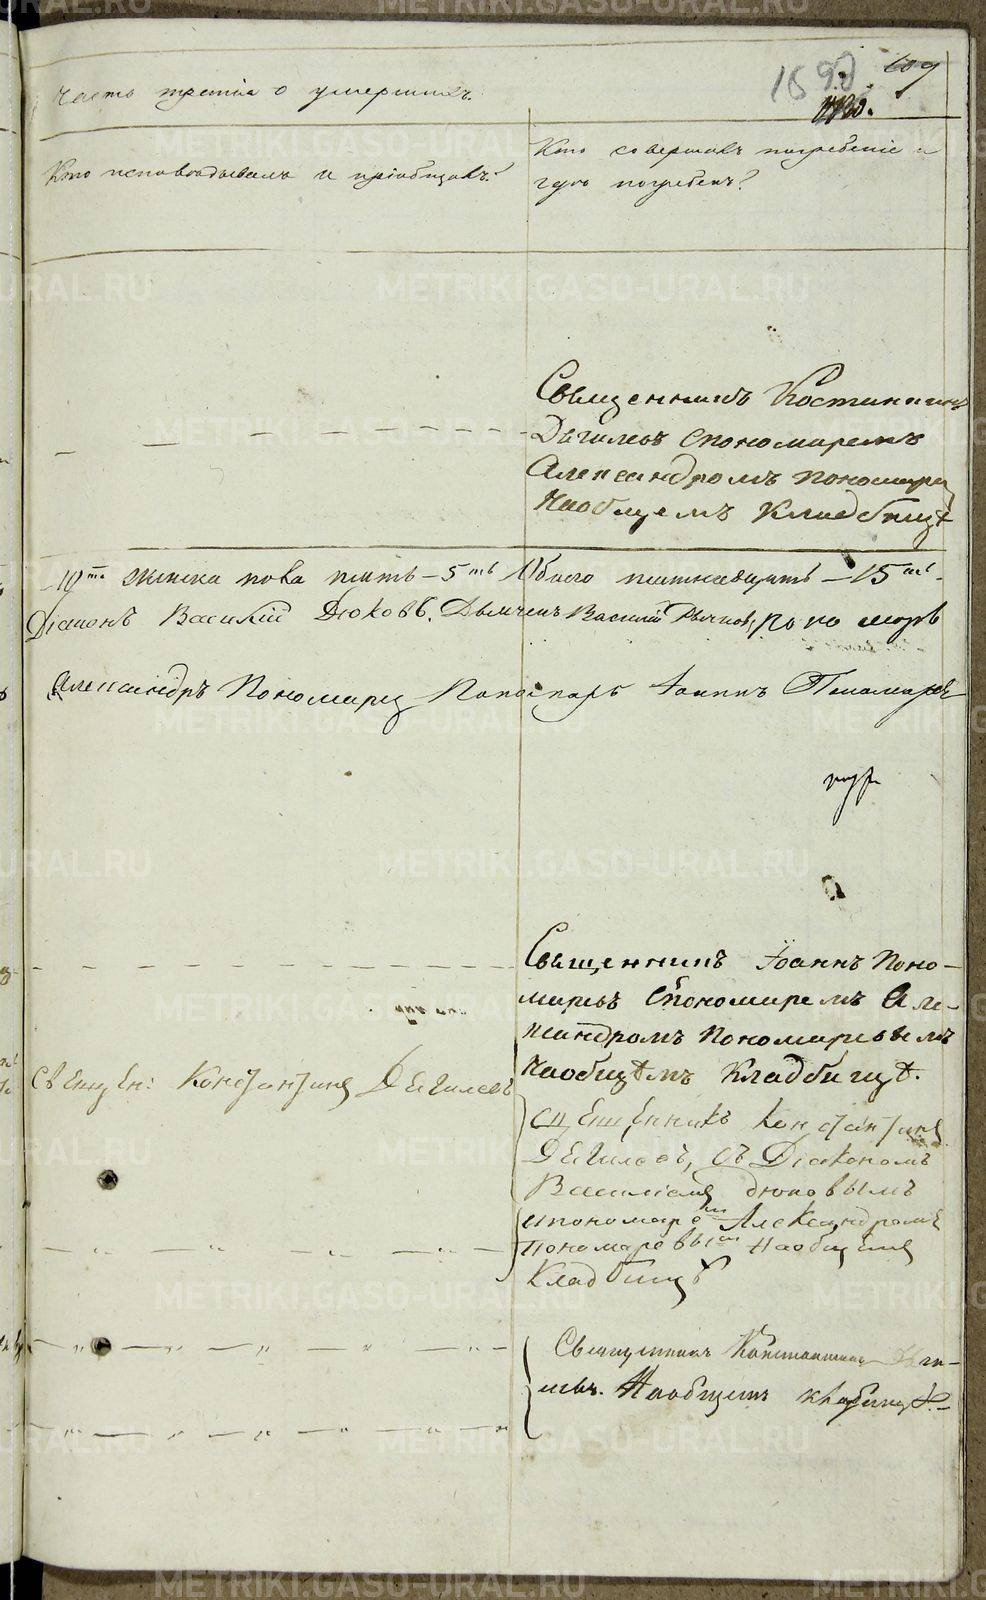 109
Часть третія о умершихъ.
Кто исповѣдывалъ и пріобщалъ?
Кто совершалъ погребеніе и
гдѣ погребенъ?
Священникъ Костинтинъ
Дягилевъ спономаремъ
Александромъ Пономарев
Наобщемъ Кладбищѣ
10ть женска пола пять – 5ть Обоего пятнадцать – 15ть.
Діаконъ Василій Дюковъ. Дьячекъ Василій
Александръ Пономарев Іоаннъ Пономарев
Священникъ Іоаннъ Поно-
маревъ спономаремъ Але-
ксандромъ Пономаревымъ
Наобщѣмъ Кладбищѣ.
Священ: Константинъ Дягилевъ
Священникъ Константинъ
Дягилевъ, съ Діакономъ
Василіемъ Дюковымъ
ипономаремъ Александромъ
Пономаревымъ Наобщемъ
Кладбищѣ
Священникъ Константинъ Дяги-
левъ. Наобщемъ кладбищѣ.